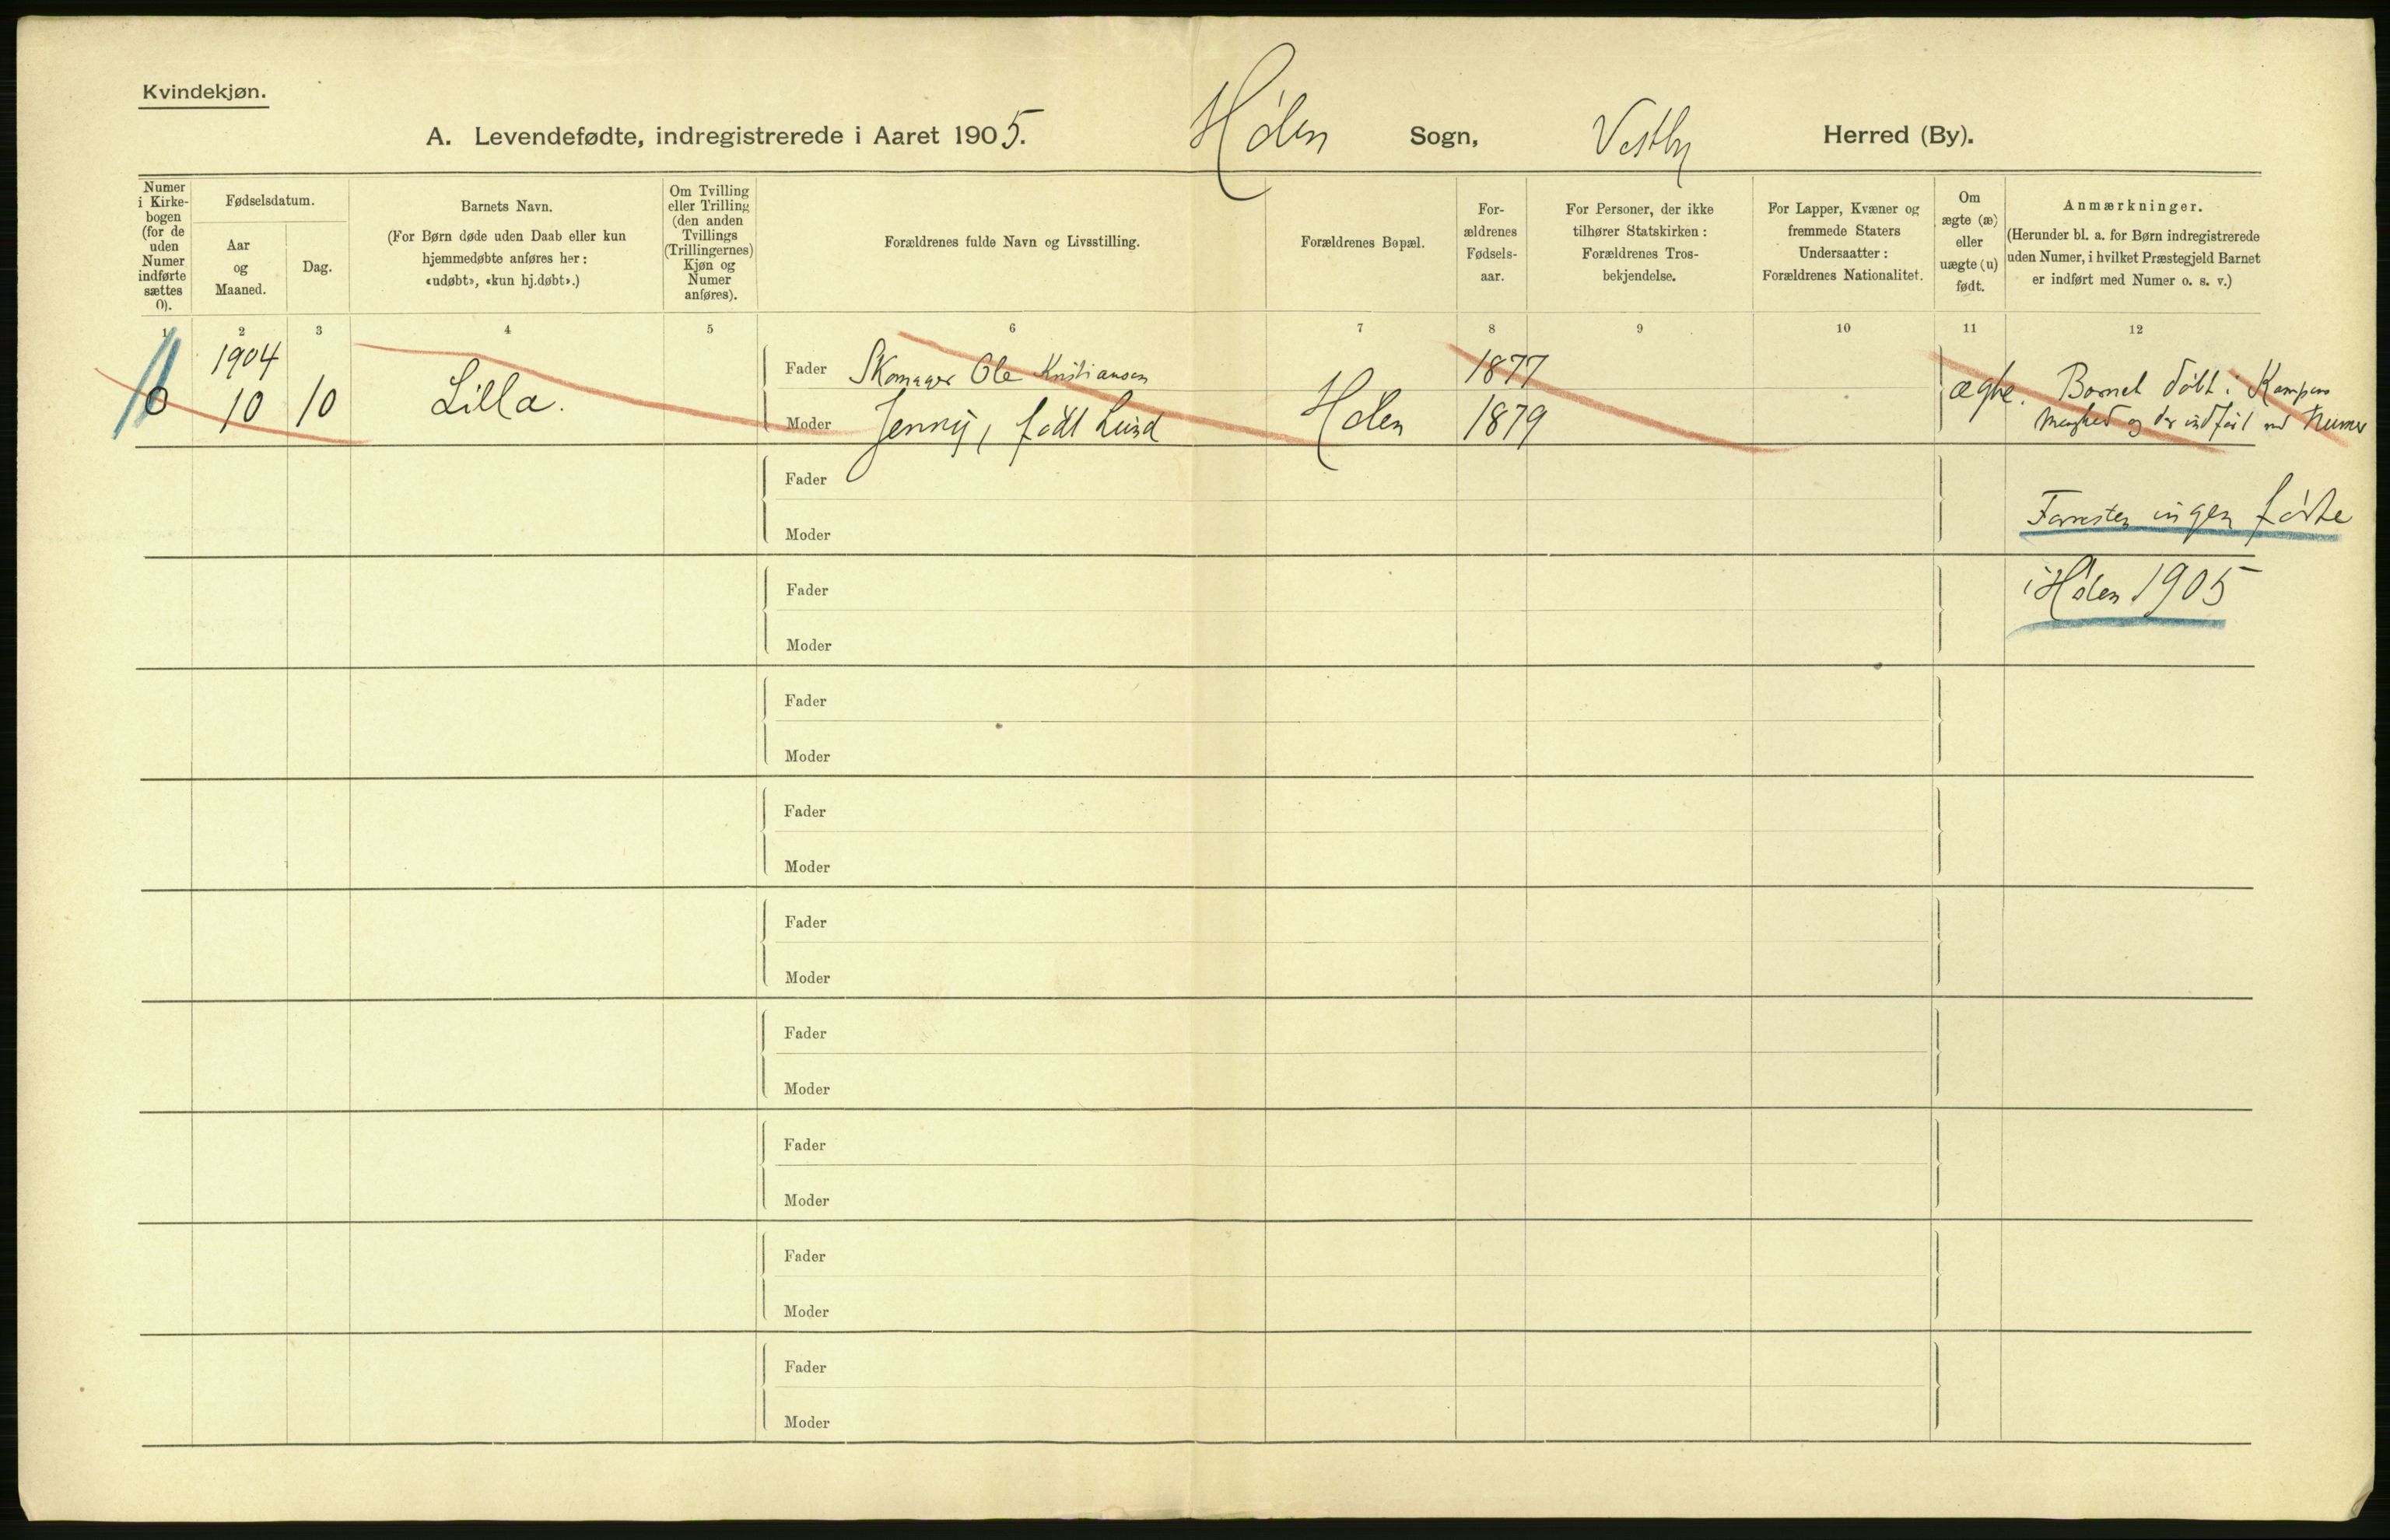 Kvindekjøn.
A. Levendefødte, indregistrerede i Aaret 1905. Hölen Sogn, Vestby Herred (By).
Numer
i Kirke-
bogen
(for de
uden
Numer
indførte
sættes
0).
Fødselsdatum.
Aar
og
Maaned.
Dag.
Barnets Navn.
(For Børn døde uden Daab eller kun
hjemmedøbte anføres her:
«udøbt», «kun hj.døbt».)
Om Tvilling
eller Trilling
(den anden
Tvillings
(Trillingernes)
Kjøn og
Numer
anføres).
Forældrenes fulde Navn og Livsstilling.
Forældrenes Bopæl.
For-
ældrenes
Fødsels-
aar.
For Personer, der ikke
tilhører Statskirken:
Forældrenes Tros-
bekjendelse.
For Lapper, Kvæner og
fremmede Staters
Undersaatter:
Forældrenes Nationalitet.
Om
ægte (æ)
eller
uægte (u)
født.
Anmærkninger.
(Herunder bl. a. for Børn indregistrerede
uden Numer, i hvilket Præstegjeld Barnet
er indført med Numer o. s. v.)
1 2 3 4 5 6 7 8 9 10 11 12
0
1904
10
10
Lilla.
Fader Skomager Ole Kristiansen
Moder Jenny, født Lund
Hølen
1877
1879
ægte.
Barnet døbt i Kampens
Menighed og der indført med Numer
Forresten ingen fødte
i Hølen 1905
Fader
Moder
Fader
Moder
Fader
Moder
Fader
Moder
Fader
Moder
Fader
Moder
Fader
Moder
Fader
Moder
Fader
Moder